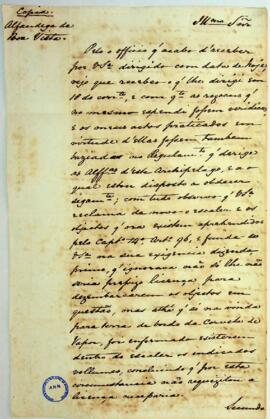 Copia
Alfandega da
Boa Vista
Illmo Snr
Pelo officio q' acabo d'receber
por VSa dirigido com data de hoje,
vejo que recebeo o q' lhe dirigi em
18 do corrte, e com qto as razoens q'
no mesmo expendi fossem veridicas,
e os meus actos praticados em
virtude d'ellas fossem tambem
baseados no Regulamto q' dirige
as Alffas d'este Archipelago, e ao
qual estou disposto a obdecer
segamte; com tudo observo q' VSa
reclama de novo o escaler e os
objectos q' ora existem aprehendidos
pelo Capto 14 Arto 96, e funda-se
VSa na sua exigencia dizendo
primo, q' ignorava não se lhe
seria preciso licença para
dezembarcarem os objectos em
questão, mas athé q' se na vinda
para terra de bordo da Corveta de
Vapor, foi enformado existerem
dentro do escaler os indicados
vollumes, concluindo q' por esta
circumstancia não requezitou a
licença necessaria.
Secundo
AHN